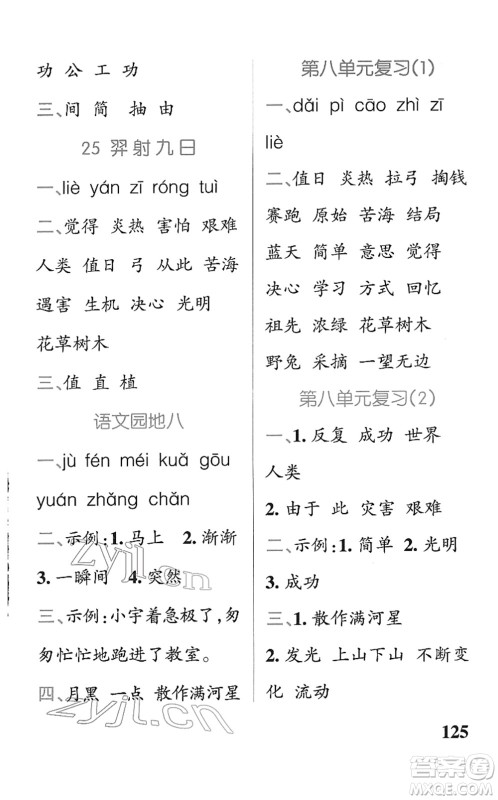 功 公 工 功
三、间 简 抽 由
25 羿射九日
一、liè yán zī róng tuì
二、觉得 炎热 害怕 艰难
人类 值日 弓 从此 苦海
遇害 生机 决心 光明
花草树木
三、值 直 植
语文园地八
一、jù fén méi kuǎ gōu
yuán zhǎng chǎn
二、示例:1. 马上 2. 渐渐
3. 一瞬间 4. 突然
三、示例:小宇着急极了,匆
匆忙忙地跑进了教室。
四、月黑 一点 散作满河星
第八单元复习(1)
一、dǎi pì cāo zhì zī
liè
二、值日 炎热 拉弓 掏钱
赛跑 原始 苦海 结局
蓝天 简单 意思 觉得
决心 学习 方式 回忆
祖先 浓绿 花草树木
野兔 采摘 一望无边
第八单元复习(2)
一、1. 反复 成功 世界
人类
2. 由于 此 灾害 艰难
二、示例:1. 简单 2. 光明
3. 成功
三、1. 散作满河星
2. 发光 上山下山 不断变
化 流动
125
zyjl.cn
zyjl.cn
答案圈
MXQE.COM